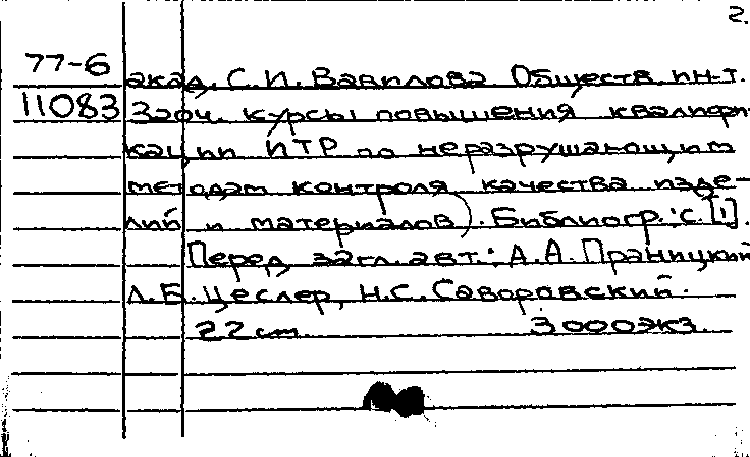 2.
77-6 акад. С.И. Вавилова Обществ. ин-т.
11083 Заоч. курсы повышения квалифи-
кации ИТР по неразрушающим
методам контроля качества изде-
лий и материалов). Библиогр.: с. [1].
Перед загл. авт.: А.А. Праницкий
Л.Б. Цеслер, Н.С. Саворовский.
22 см. 3000экз.